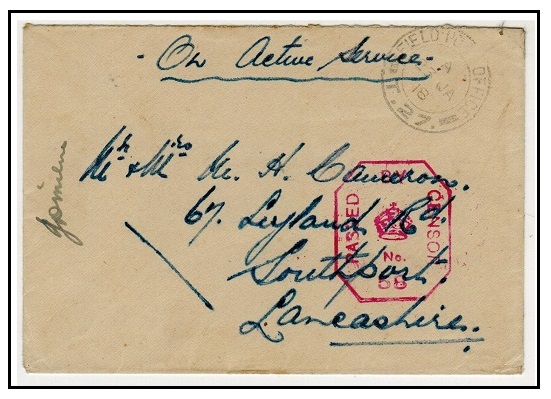 - On Active Service -
FIELD POST OFFICE
A
JA
27
Mr & Mrs M. H. Cameron.
67. Leyland Rd.
Southport.
Lancashire.
PASSED BY CENSOR
No.
58